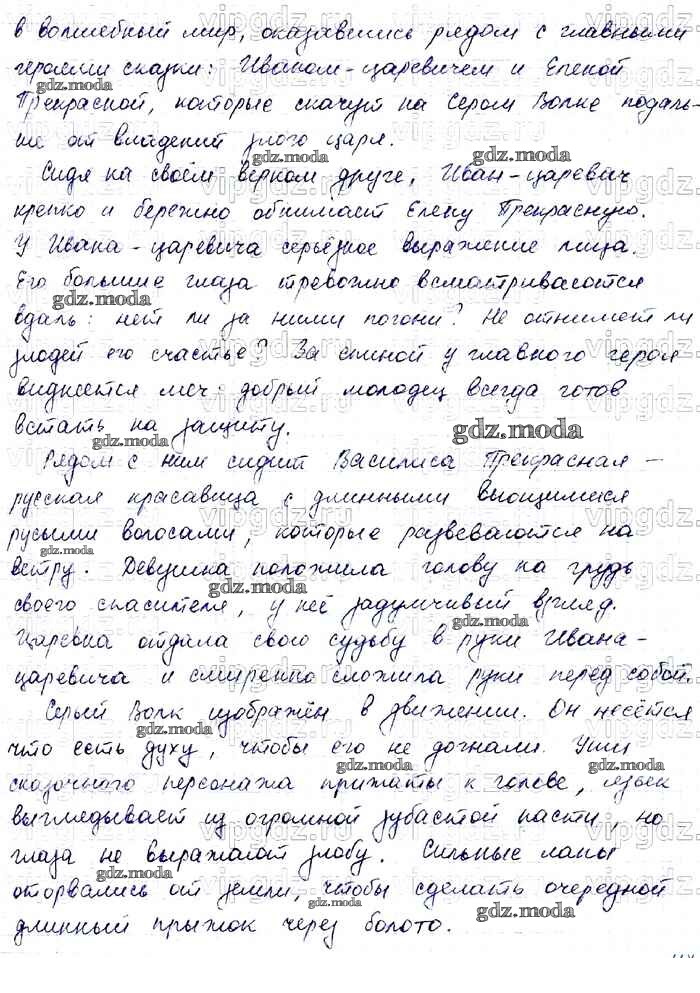 в волшебный мир, оказавшись рядом с главными
героями сказки: Иваном-царевичем и Еленой
Прекрасной, которые скачут на Сером Волке подаль-
ше от владений злого царя.
Сидя на своём верном друге, Иван-царевич
крепко и бережно обнимает Елену Прекрасную.
У Ивана-царевича серьёзное выражение лица.
Его большие глаза тревожно всматриваются
вдаль: нет ли за ними погони? Не отнимет ли
злодей его счастье? За спиной у главного героя
виднеется меч: добрый молодец всегда готов
встать на защиту.
Рядом с ним сидит Василиса Прекрасная –
русская красавица с длинными вьющимися
русыми волосами, которые развеваются на
ветру. Девушка положила голову на грудь
своего спасителя, у неё задумчивый взгляд.
Царевна отдала свою судьбу в руки Ивана-
царевича и смиренно сложила руки перед собой.
Серый Волк изображён в движении. Он несётся
что есть духу, чтобы его не догнали. Уши
сказочного персонажа прижаты к голове, язык
выглядывает из огромной зубастой пасти, но
глаза не выражают злобу. Сильные лапы
оторвались от земли, чтобы сделать очередной
длинный прыжок через болото.
gdz.moda
vipgdz.ru